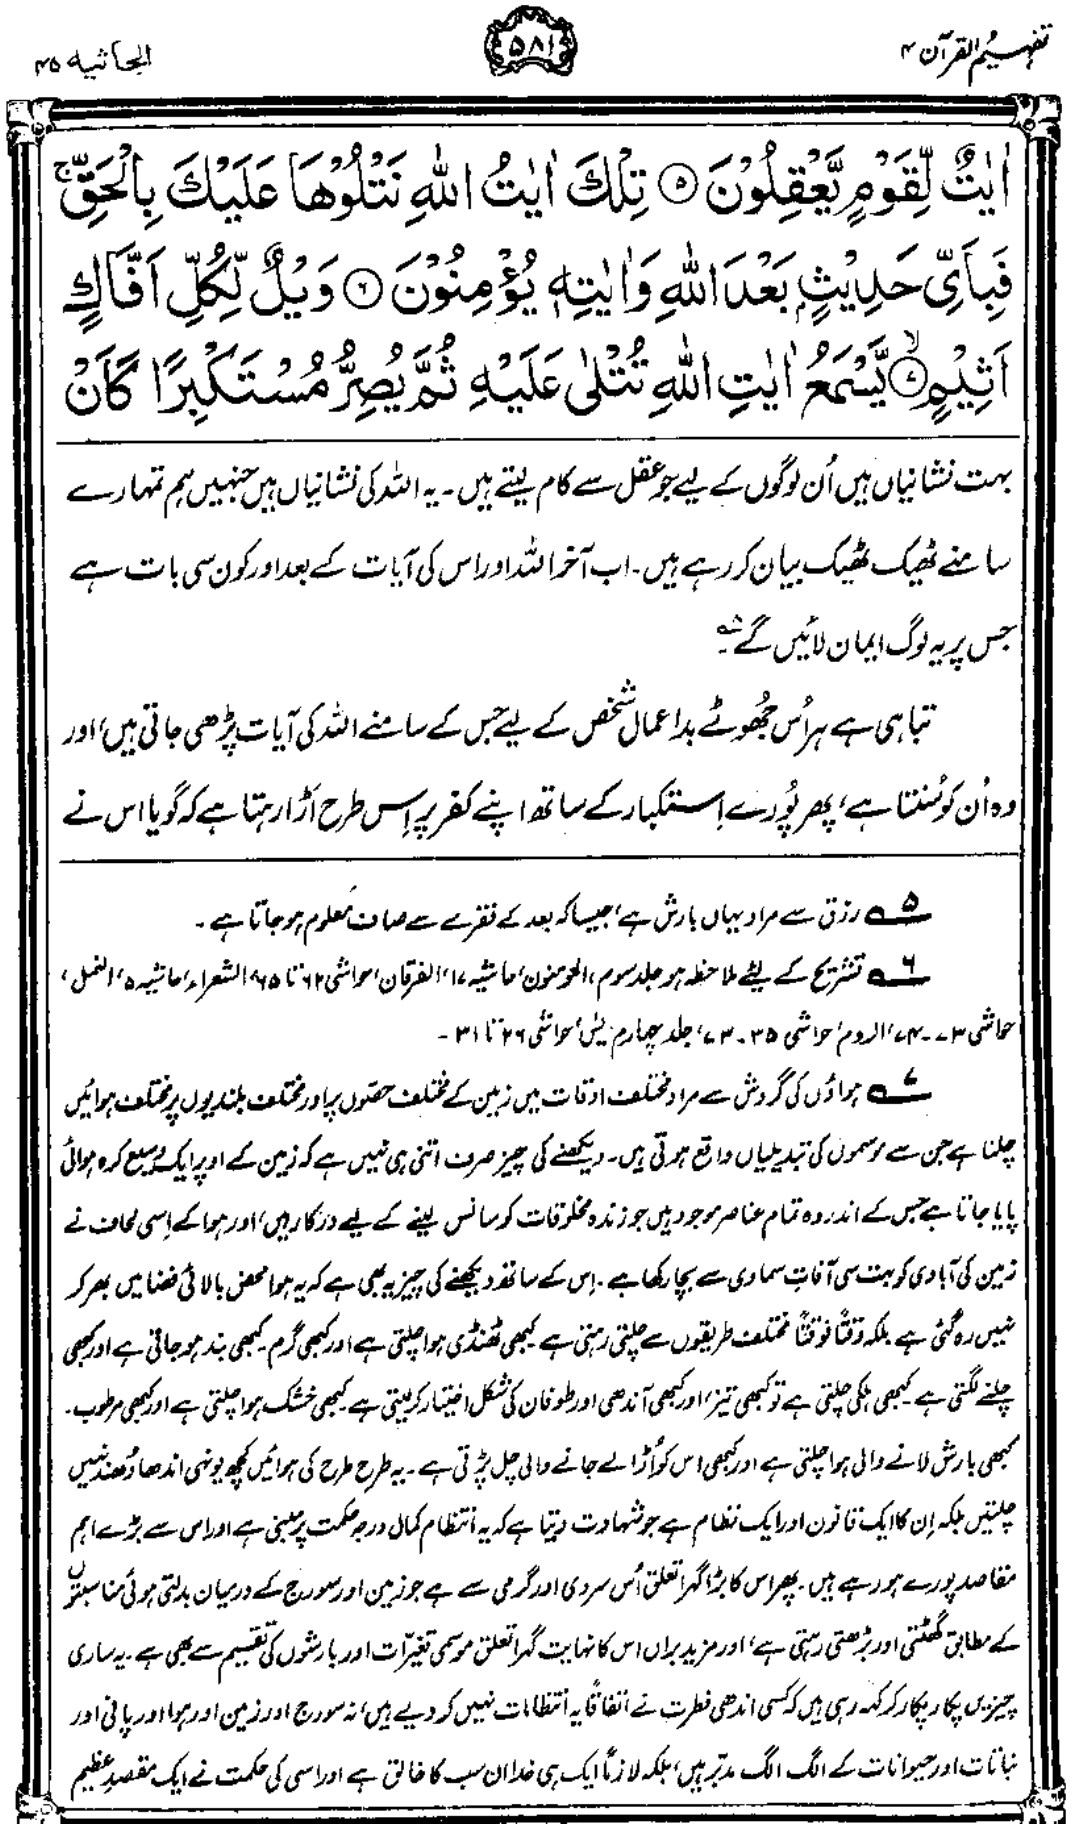 تفہیم القرآن ۴
۵۸۱
الجاثیہ ۴۵
اٰیٰتٌ لِّقَوْمٍ یَّعْقِلُوْنَ ۝۵ تِلْکَ اٰیٰتُ اللّٰهِ نَتْلُوْهَا عَلَیْکَ بِالْحَقِّ ۚ
فَبِاَیِّ حَدِیْثٍۭ بَعْدَ اللّٰهِ وَاٰیٰتِهٖ یُؤْمِنُوْنَ ۝۶ وَیْلٌ لِّکُلِّ اَفَّاکٍ
اَثِیْمٍ ۝۷ۙ یَّسْمَعُ اٰیٰتِ اللّٰهِ تُتْلٰی عَلَیْهِ ثُمَّ یُصِرُّ مُسْتَکْبِرًا کَاَنْ
بہت نشانیاں ہیں اُن لوگوں کے لیے جو عقل سے کام لیتے ہیں۔ یہ اللہ کی نشانیاں ہیں جنہیں ہم تمہارے
سامنے ٹھیک ٹھیک بیان کر رہے ہیں۔ اب آخر اللہ اور اس کی آیات کے بعد اور کون سی بات ہے
جس پر یہ لوگ ایمان لائیں گے۔
تباہی ہے ہر اُس جُھوٹے بداعمال شخص کے لیے جس کے سامنے اللہ کی آیات پڑھی جاتی ہیں، اور
وہ اُن کو سُنتا ہے، پھر پُورے اِستکبار کے ساتھ اپنے کفر پر اِس طرح اَڑا رہتا ہے کہ گویا اس نے
۵ رزق سے مراد یہاں بارش ہے، جیسا کہ بعد کے فقرے سے صاف معلوم ہو جاتا ہے۔
۶ تشریح کے لئے ملاحظہ ہو جلد سوم، المومنون، حاشیہ ۱۷، الفرقان، حواشی ۶۲ تا ۶۵، الشعراء، حاشیہ ۵، النمل،
حواشی ۷۳-۷۴، الروم، حواشی ۳۵-۷۳، جلد چہارم یٰس، حواشی ۲۶ تا ۳۱۔
۷ ہواؤں کی گردش سے مراد مختلف اوقات میں زمین کے مختلف حصّوں پر اور مختلف بلندیوں پر مختلف ہوائیں
چلنا ہے جن سے موسموں کی تبدیلیاں واقع ہوتی ہیں۔ دیکھنے کی چیز صرف اتنی ہی نہیں ہے کہ زمین کے اوپر ایک وسیع کرہ ہوائی
پایا جاتا ہے جس کے اندر وہ تمام عناصر موجود ہیں جو زندہ مخلوقات کو سانس لینے کے لیے درکار ہیں، اور ہوا کے اِسی لحاف نے
زمین کی آبادی کو بہت سی آفاتِ سماوی سے بچا رکھا ہے۔ اِس کے ساتھ دیکھنے کی چیز یہ بھی ہے کہ یہ ہوا محض بالائی فضا میں بھر کر
نہیں رہ گئی ہے بلکہ وقتاً فوقتاً مختلف طریقوں سے چلتی رہتی ہے۔ کبھی ٹھنڈی ہوا چلتی ہے اور کبھی گرم۔ کبھی بند ہو جاتی ہے اور کبھی
چلنے لگتی ہے۔ کبھی ہلکی چلتی ہے تو کبھی تیز، اور کبھی آندھی اور طوفان کی شکل اختیار کر لیتی ہے۔ کبھی خشک ہوا چلتی ہے اور کبھی مرطوب۔
کبھی بارش لانے والی ہوا چلتی ہے اور کبھی اس کو اُڑا لے جانے والی چل پڑتی ہے۔ یہ طرح طرح کی ہوائیں کچھ یونہی اندھا دھند نہیں
چلتیں بلکہ اِن کا ایک قانون اور ایک نظام ہے جو شہادت دیتا ہے کہ یہ انتظام کمال درجہ حکمت پر مبنی ہے اور اس سے بڑے اہم
مقاصد پورے ہو رہے ہیں۔ پھر اس کا بڑا گہرا تعلق اُس سردی اور گرمی سے ہے جو زمین اور سورج کے درمیان بدلتی ہوئی مناسبتوں
کے مطابق گھٹتی اور بڑھتی رہتی ہے، اور مزید براں اس کا نہایت گہرا تعلق موسمی تغیّرات اور بارشوں کی تقسیم سے بھی ہے۔ یہ ساری
چیزیں پکار پکار کر کہہ رہی ہیں کہ کسی اندھی فطرت نے اتفاقاً یہ انتظامات نہیں کر دیے ہیں، نہ سورج اور زمین اور ہوا اور پانی اور
نباتات اور حیوانات کے الگ الگ مدبّر ہیں، بلکہ لازماً ایک ہی خدا ان سب کا خالق ہے اور اسی کی حکمت نے ایک مقصدِ عظیم